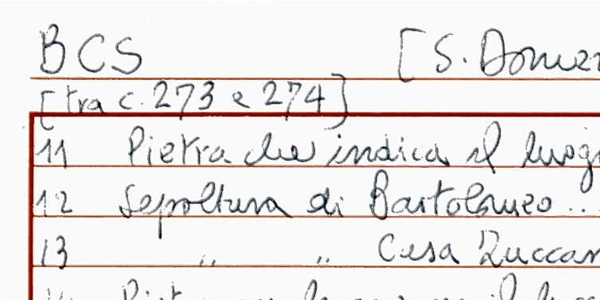 BCS [S. Domen
[tra c. 273 e 274]
11 Pietra che indica il luog
12 Sepoltura di Bartolomeo ..
13 " " Casa Zuccar